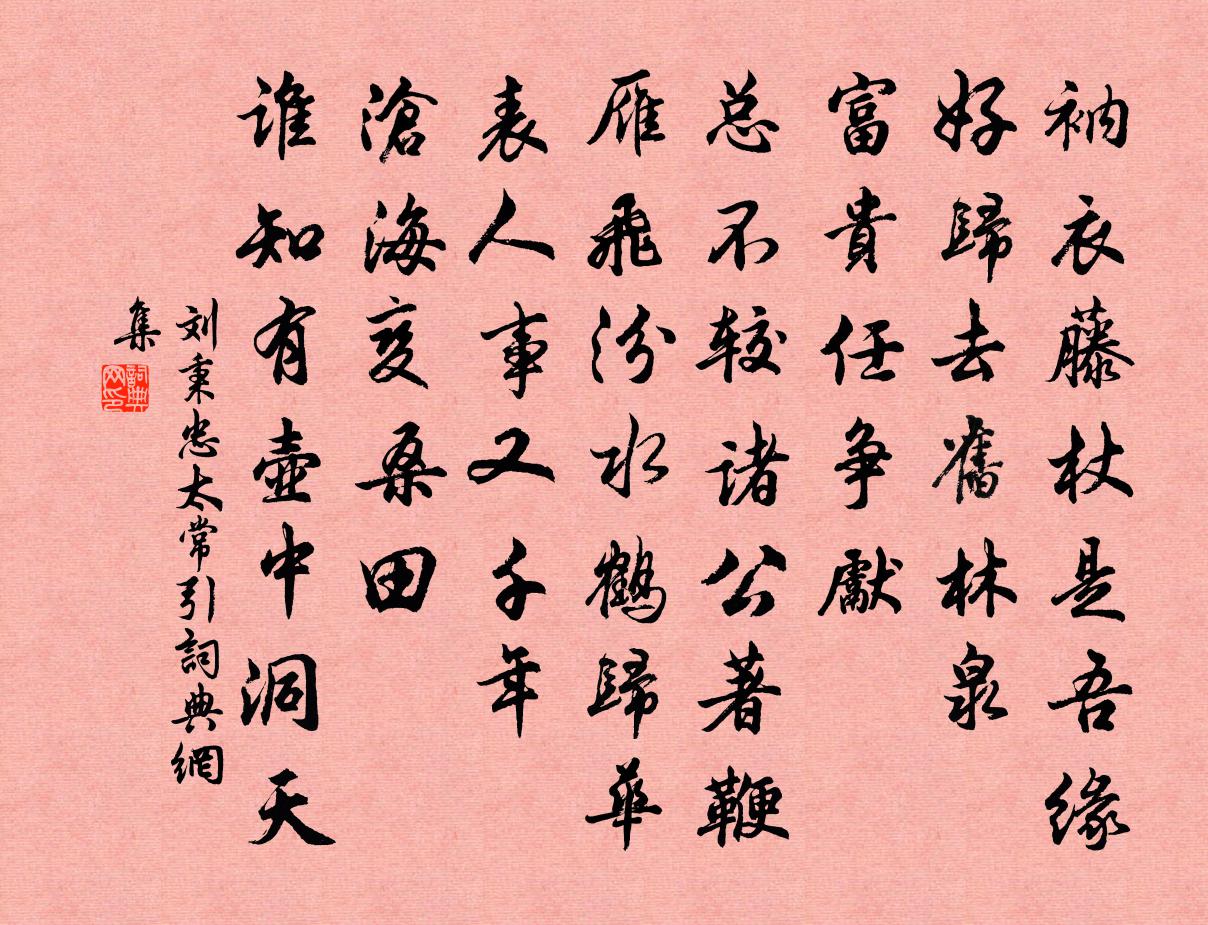 衲衣藤杖是吾缘
好歸去舊林泉
富貴任争獻
总不较诸公著鞭
雁飛汾水鶴歸華
表人事又千年
滄海变桑田
谁知有壺中洞天
刘秉忠太常引詞典網
集
詞典网印